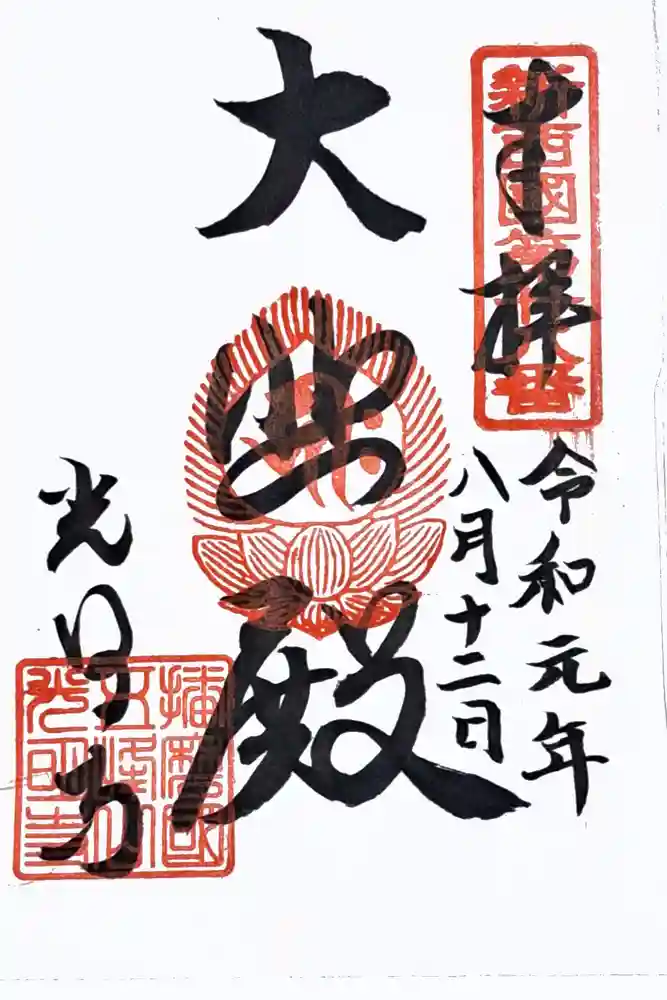 新西國第廿八番
奉拝
令和元年
八月十二日
大悲殿
光明寺
播磨國
五峰山
光明寺